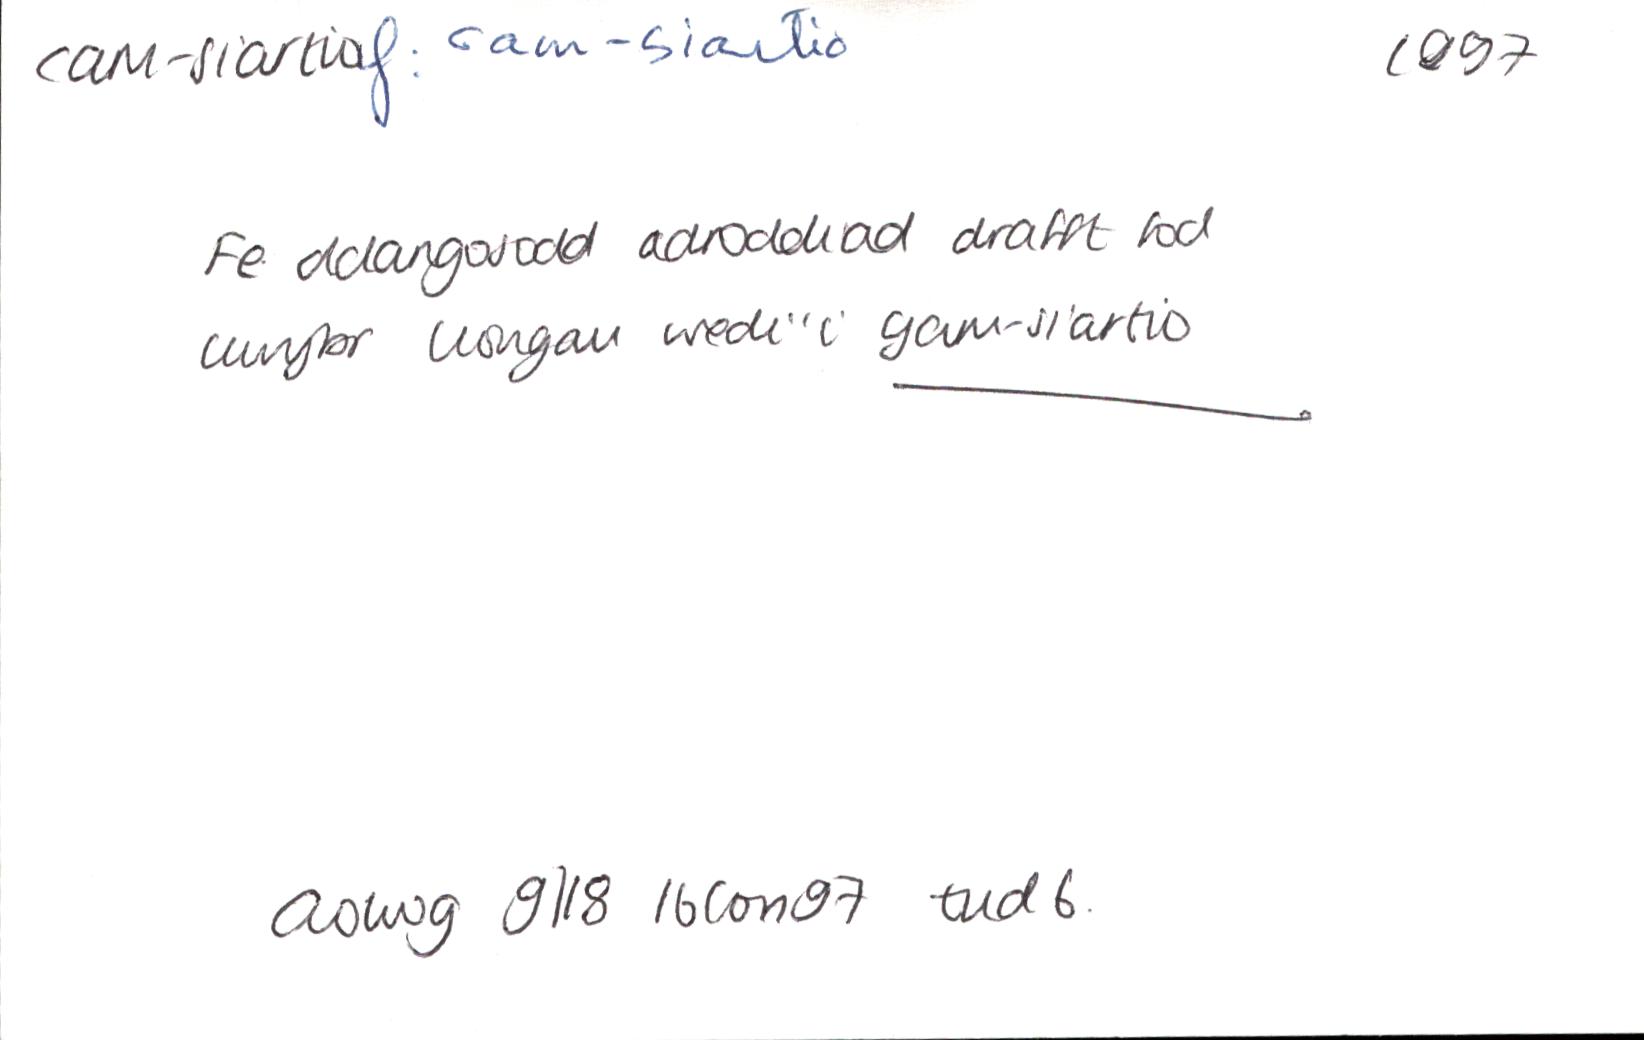 cam-siartiaf: cam-siartio 1997
Fe ddangosodd adroddiad drafft fod
llongau wedi'i gam-siartio
Golwg 9/18 16Ion97 tud 6.